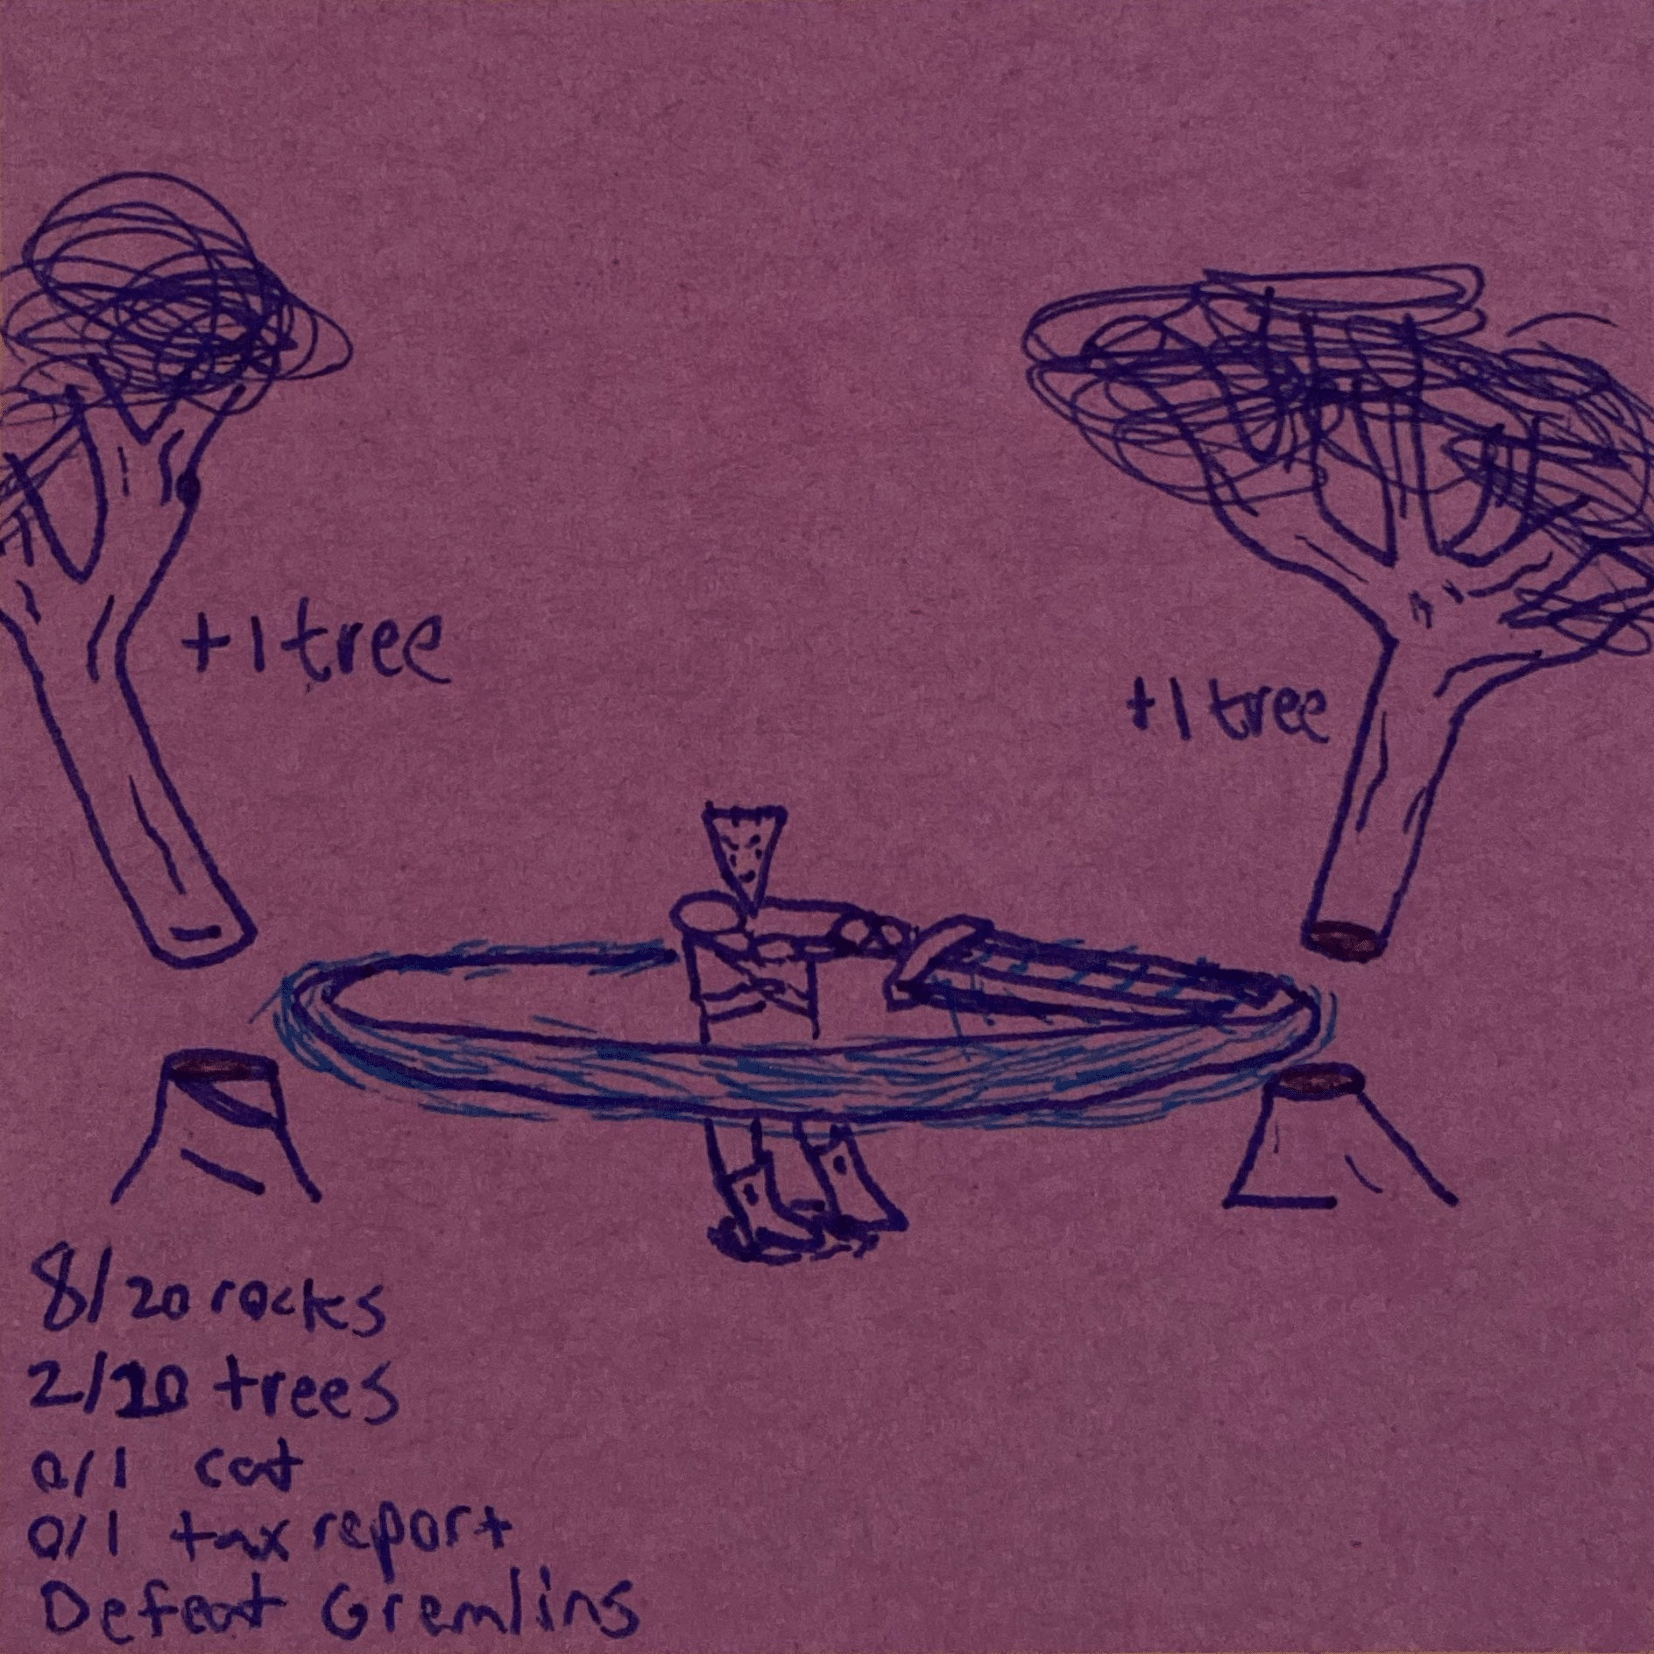 +1 tree
+1 tree
8/20 rocks
2/10 trees
0/1 cat
0/1 tax report
Defeat Gremlins